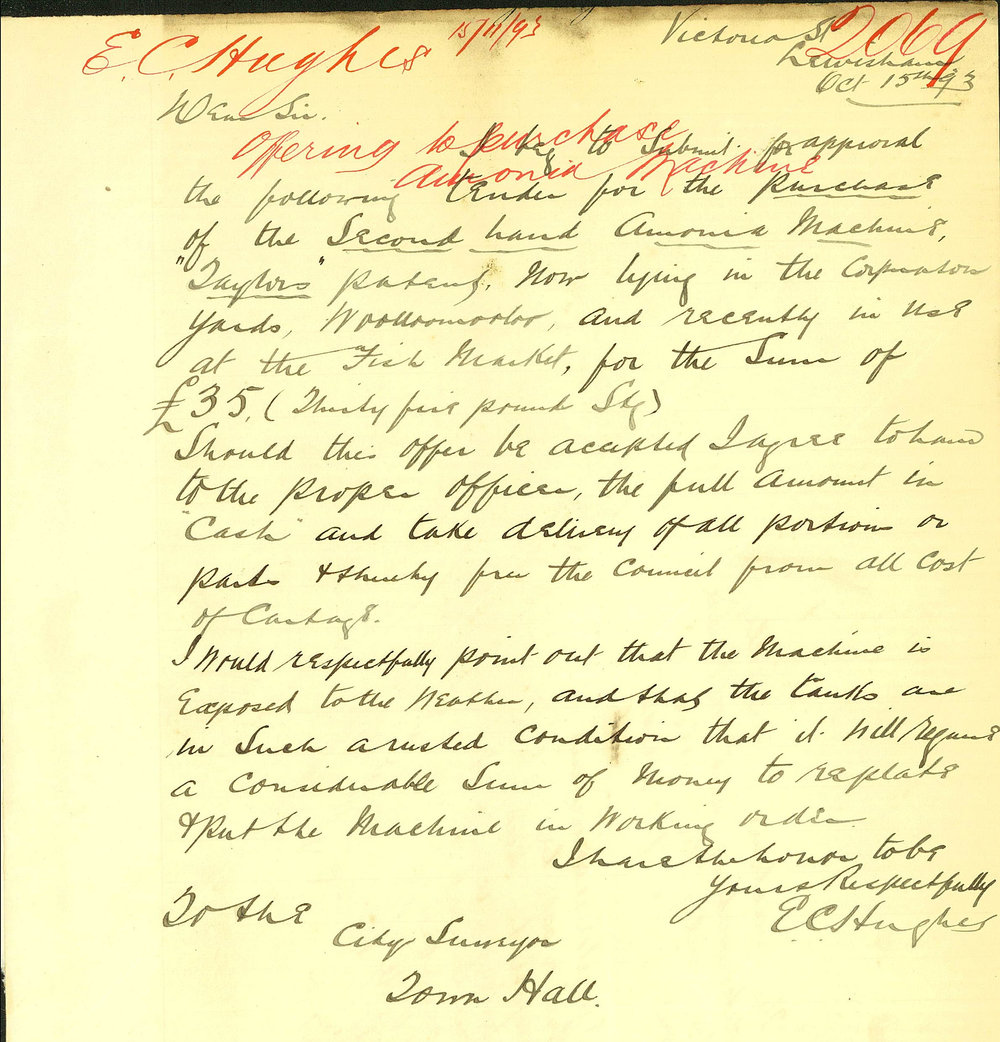 E. C. Hughes 15/11/93 2069
Victoria St
Lewisham
Oct 15th 93
Dear Sir.
Offering to purchase
Amonia Machine
I beg to Submit for approval
the following tender for the Purchase
of the Second hand Amonia Machine,
"Taylors" patent, Now lying in the Corporation
Yards, Woolloomooloo, and recently in use
at the Fish Market, for the Sum of
£35, (Thirty five pound Stg)
Should this offer be accepted I agree to hand
to the Proper Officer, the full amount in
"Cash" and take delivery of all portions or
parts & thereby free the Council from all Cost
of Cartage.
I Would respectfully point out that the Machine is
Exposed to the Weather, and that the tanks are
in Such a rusted Condition that it Will require
a Considerable Sum of Money to replate
& put the Machine in Working order.
I have the honor to be
Yours Respectfully
E C Hughes
To the
City Surveyor
Town Hall.